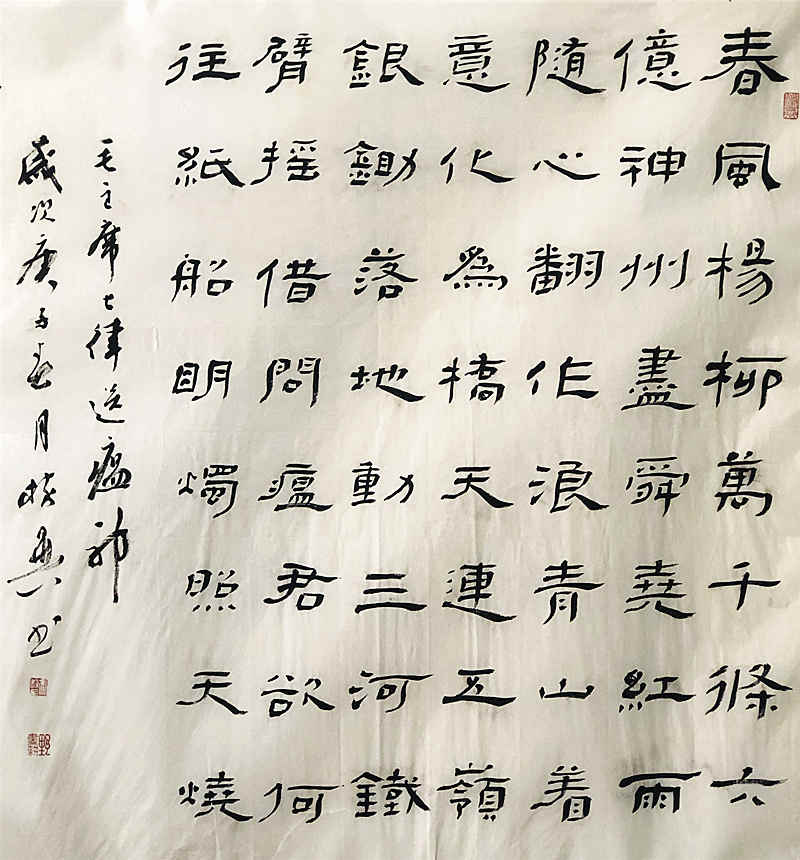 春風楊柳萬千條六
億神州盡舜堯紅雨
随心翻作浪青山着
意化為橋天連五嶺
銀鋤落地動三河鐵
臂摇借問瘟君欲何
往紙船明燭照天燒
毛主席七律送瘟神
歲次庚子春月书